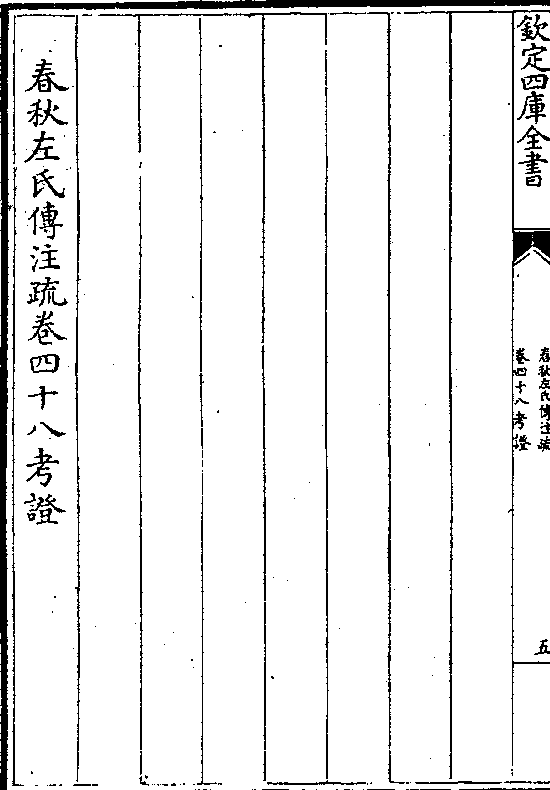 欽定四庫全書
春秋左氏傳注疏
卷四十八考證
五
春秋左氏傳注疏卷四十八考證